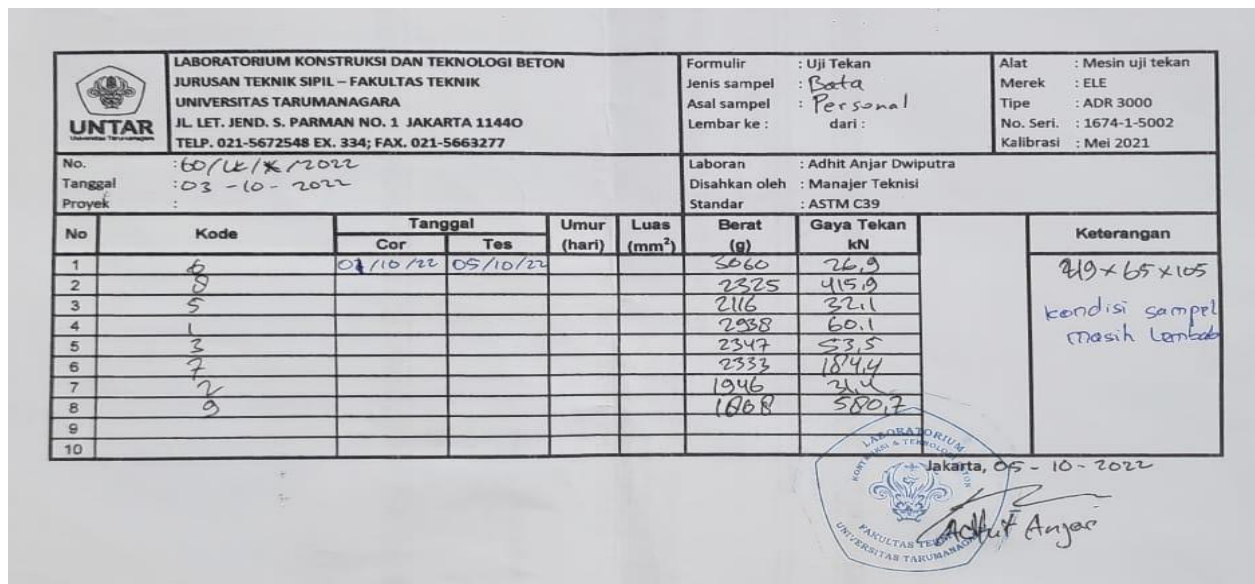 UNTAR
LABORATORIUM KONSTRUKSI DAN TEKNOLOGI BETON
JURUSAN TEKNIK SIPIL – FAKULTAS TEKNIK
UNIVERSITAS TARUMANAGARA
JL. LET. JEND. S. PARMAN NO. 1 JAKARTA 1144O
TELP. 021-5672548 EX. 334; FAX. 021-5663277
Formulir : Uji Tekan
Jenis sampel : Bata
Asal sampel : Personal
Lembar ke : dari :
Alat : Mesin uji tekan
Merek : ELE
Tipe : ADR 3000
No. Seri. : 1674-1-5002
Kalibrasi : Mei 2021
No. : 60/LK/X/2022
Tanggal : 03-10-2022
Proyek :
Laboran : Adhit Anjar Dwiputra
Disahkan oleh : Manajer Teknisi
Standar : ASTM C39
No Kode Tanggal Umur Luas Berat Gaya Tekan Keterangan
Cor Tes (hari) (mm²) (g) kN
1 6 /10/22 05/10/22 3060 26,9
2 8 2325 415,9
3 5 2116 32,1
4 1 2938 60,1
5 3 2347 53,5
6 7 2333 184,4
7 2 1946 31,4
8 9 580,7
9
10
219x65x105
kondisi sampel
masih lembab
LABORATORIUM
KONSTRUKSI & TEKNOLOGI BETON
FAKULTAS TEKNIK
UNIVERSITAS TARUMANAGARA
Jakarta, 05-10-2022
Adhit Anjar